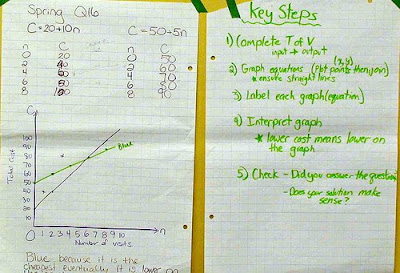 Spring Q16
C=20+10n C=50+5n
n C n C
0 20 0 50
2 40 2 60
4 60 4 70
6 80 6 80
8 100 8 90
C
100
90
80
70
60
50
40
30
20
10
Blue
Total Cost
0 1 2 3 4 5 6 7 8 9 10 n
Number of visits
Blue because it is the
cheapest eventually it is lower on
Key Steps
1) Complete T of V
input → output
(x,y)
2) Graph equations (Plot points then join)
* ensure straight lines
3) Label each graph (equation)
4) Interpret graph
* lower cost means lower on
the graph
5) Check - Did you answer the question
- Does your solution make
sense?